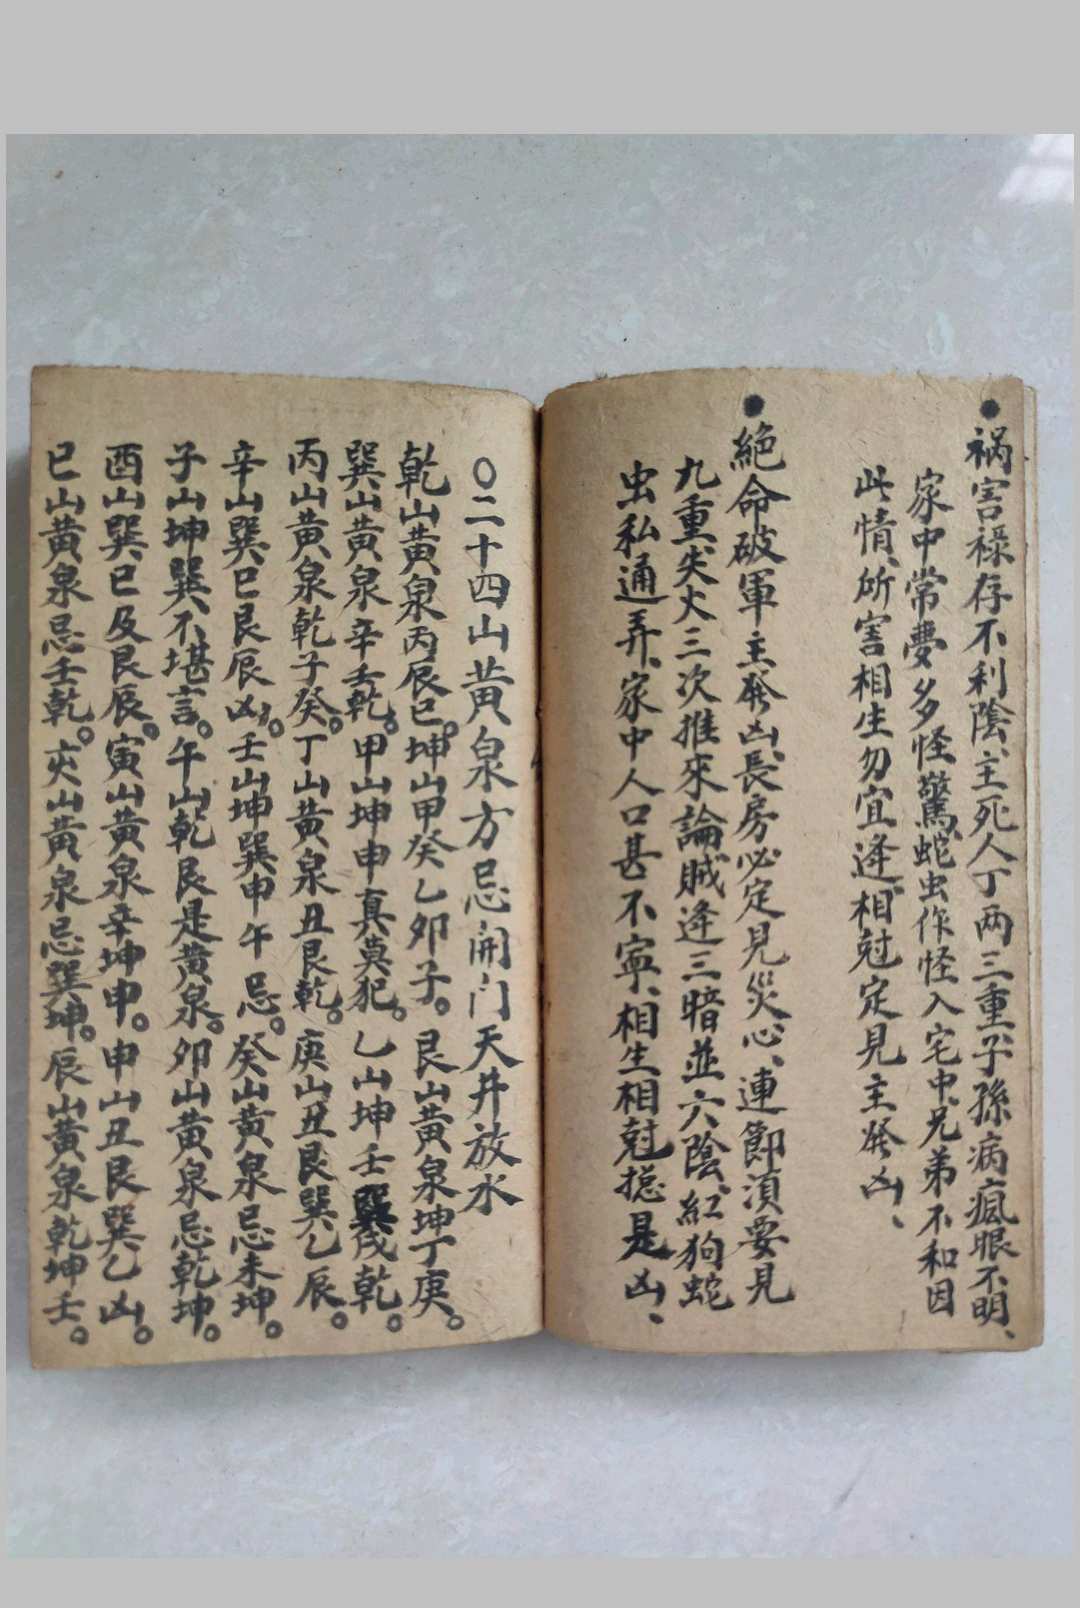 ●祸害祿存不利陰、主死人丁两三重、子孫病瘋眼不明、
家中常夢多怪驚、蛇虫作怪入宅中、兄弟不和因
此情、所害相生勿宜逢、相尅定見主發凶、
●絕命破軍主發凶、長房必定見災心、連節須要見
九重失火三次推來論、賊逢三暗並六陰、紅狗蛇
虫私通弄、家中人口甚不寧、相生相尅揔是凶、
○二十四山黄泉方忌開门天井放水
乾山黄泉丙辰巳。坤山甲癸乙卯子。艮山黄泉坤丁庚。
巽山黄泉辛壬乾。甲山坤申真莫犯。乙山坤壬巽戌乾。
丙山黄泉乾子癸。丁山黄泉丑艮乾。庚山丑艮巽乙辰。
辛山巽巳艮辰凶。壬山坤巽申午忌。癸山黄泉忌未坤。
子山坤巽不堪言。午山乾艮是黄泉。卯山黄泉忌乾坤。
酉山巽巳及艮辰。寅山黄泉辛坤申。申山丑艮巽乙凶。
巳山黄泉忌壬乾。亥山黄泉忌巽坤。辰山黄泉乾坤壬。